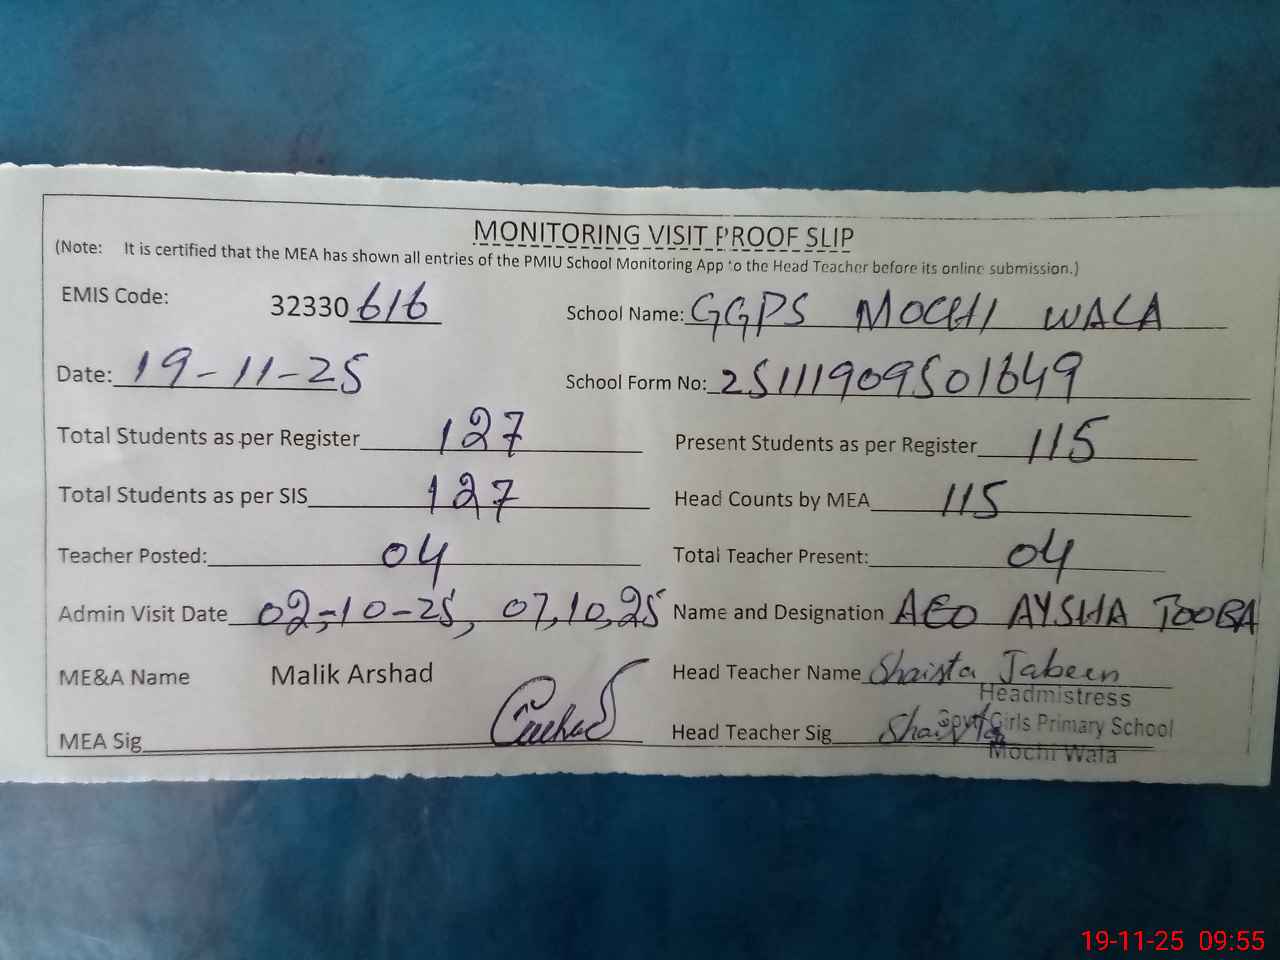 MONITORING VISIT PROOF SLIP
(Note: It is certified that the MEA has shown all entries of the PMIU School Monitoring App to the Head Teacher before its online submission.)
EMIS Code: 32330 616 School Name: GGPS MOCHI WALA
Date: 19-11-25 School Form No: 25111909501649
Total Students as per Register 127 Present Students as per Register 115
Total Students as per SIS 127 Head Counts by MEA 115
Teacher Posted: 04 Total Teacher Present: 04
Admin Visit Date 02-10-25, 07,10,25 Name and Designation AEO AYSHA TOOBA
ME&A Name Malik Arshad Head Teacher Name Shaista Jabeen
Headmistress
MEA Sig Head Teacher Sig Shaista Govt Girls Primary School
Mochi Wala
19-11-25 09:55